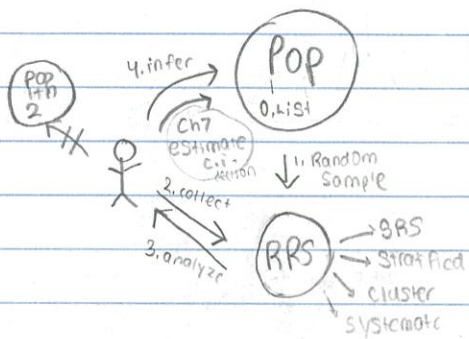 4. infer
POP
0. List
POP
2
Ch7
estimate
c.i.
1. Random
Sample
2. collect
3. analyze
RRS
SRS
Stratified
cluster
systematic